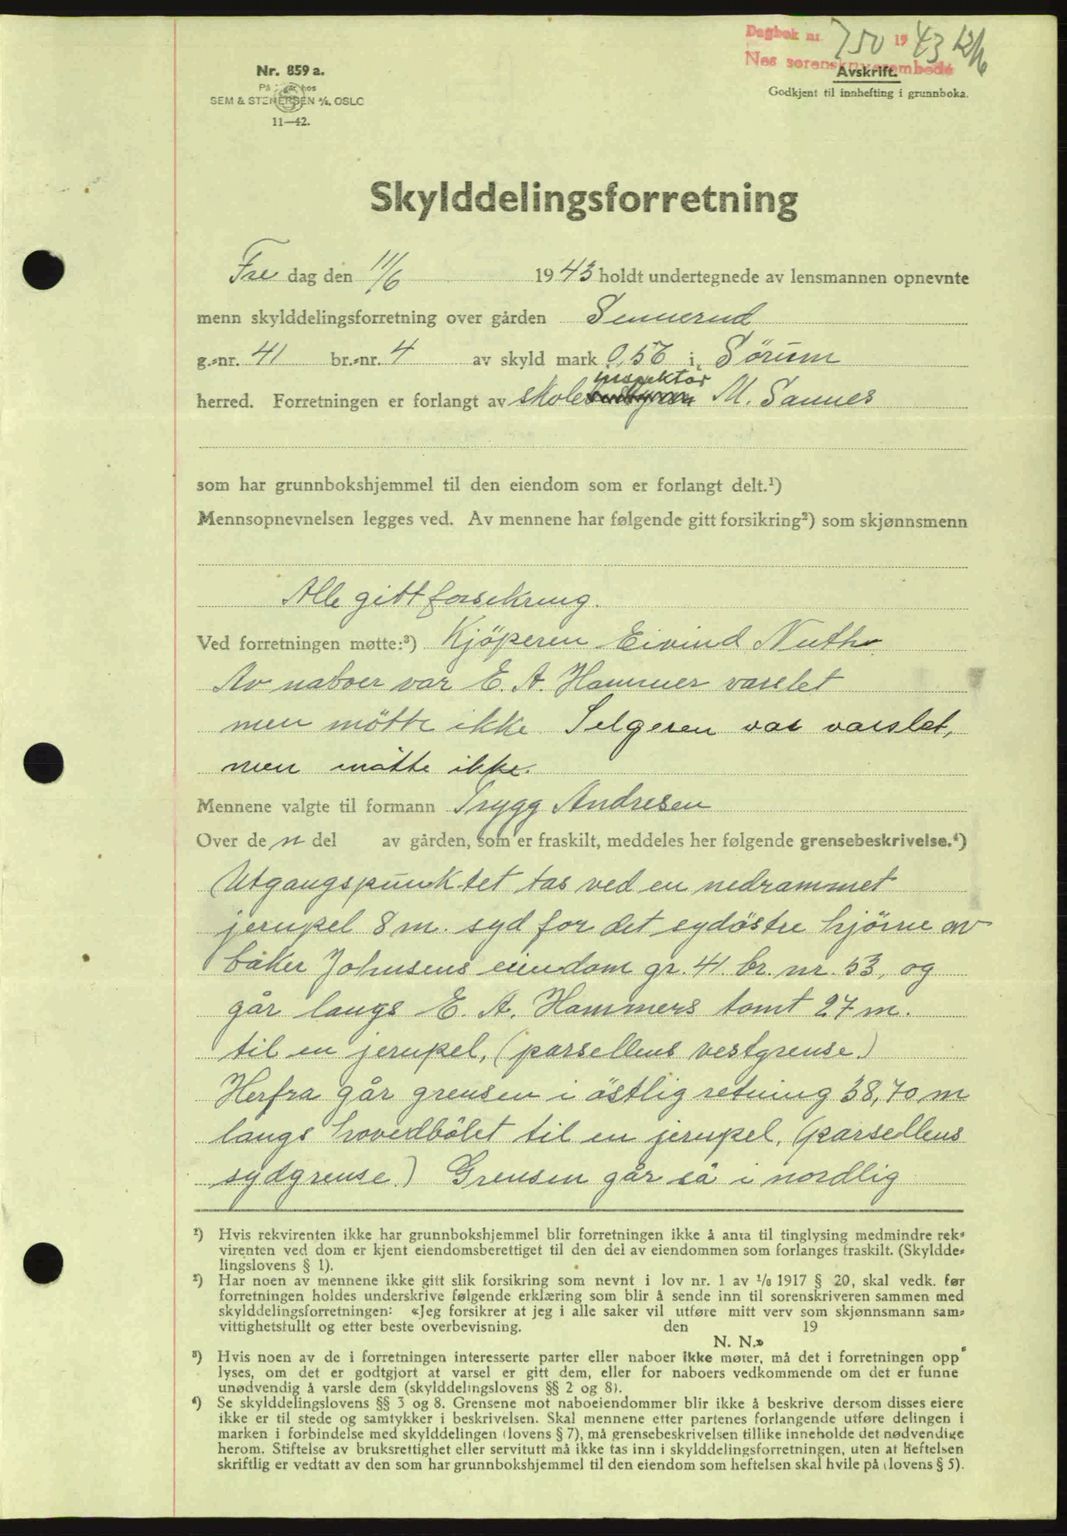 Dagbok nr. 750 1943 12/6
Nes sorenskriverembede
Nr. 859 a.
På lager hos
SEM & STENERSEN A/S, OSLO
11—42.
Avskrift.
Godkjent til innhefting i grunnboka.
Skylddelingsforretning
Fre dag den 11/6 1943 holdt undertegnede av lensmannen opnevnte
menn skylddelingsforretning over gården Sennerud
g.-nr. 41 br.-nr. 4 av skyld mark 0,56 i Sørum
inspektør
herred. Forretningen er forlangt av skole M. Sannes
som har grunnbokshjemmel til den eiendom som er forlangt delt.¹)
Mennsopnevnelsen legges ved. Av mennene har følgende gitt forsikring²) som skjønnsmenn
Alle gitt forsikring.
Ved forretningen møtte:³) Kjöperen Eivind Nuth
Av naboer var E. A. Hammer varslet
men mötte ikke. Selgeren var varslet,
men møtte ikke.
Mennene valgte til formann Trygg Andresen
Over de n del av gården, som er fraskilt, meddeles her følgende grensebeskrivelse.⁴)
Utgangspunktet tas ved en nedrammet
jernpel 8 m. syd for det sydöstre hjörne av
båker Johnsens eiendom gr. 41 br. nr. 53, og
går langs E. A. Hammers tomt 27 m.
til en jernpel, (parsellens vestgrense.)
Herfra går grensen i östlig retning 38,70 m
langs hovedbölet til en jernpel, (parsellens
sydgrense.) Grensen går så i nordlig
¹) Hvis rekvirenten ikke har grunnbokshjemmel blir forretningen ikke å anta til tinglysing medmindre rek-
virenten ved dom er kjent eiendomsberettiget til den del av eiendommen som forlanges fraskilt. (Skyldde-
lingslovens § 1).
²) Har noen av mennene ikke gitt slik forsikring som nevnt i lov nr. 1 av 1/6 1917 § 20, skal vedk. før
forretningen holdes underskrive følgende erklæring som blir å sende inn til sorenskriveren sammen med
skylddelingsforretningen: «Jeg forsikrer at jeg i alle saker vil utføre mitt verv som skjønnsmann sam-
vittighetsfullt og etter beste overbevisning. den 19
N. N.»
³) Hvis noen av de i forretningen interesserte parter eller naboer ikke møter, må det i forretningen opp-
lyses, om det er godtgjort at varsel er gitt dem, eller for naboers vedkommende om det er funne
unødvendig å varsle dem (skylddelingslovens §§ 2 og 8).
⁴) Se skylddelingslovens §§ 3 og 8. Grensene mot naboeiendommer blir ikke å beskrive dersom disses eiere
ikke er til stede og samtykker i beskrivelsen. Skal mennene etter partenes forlangende utføre delingen i
marken i forbindelse med skylddelingen (lovens § 7), må grensebeskrivelsen tillike inneholde det nødvendige
herom. Stiftelse av bruksrettighet eller servitutt må ikke tas inn i skylddelingsforretningen, uten at heftelsen
skriftlig er vedtatt av den som har grunnbokshjemmel til den eiendom som heftelsen skal hvile på (lovens § 5).